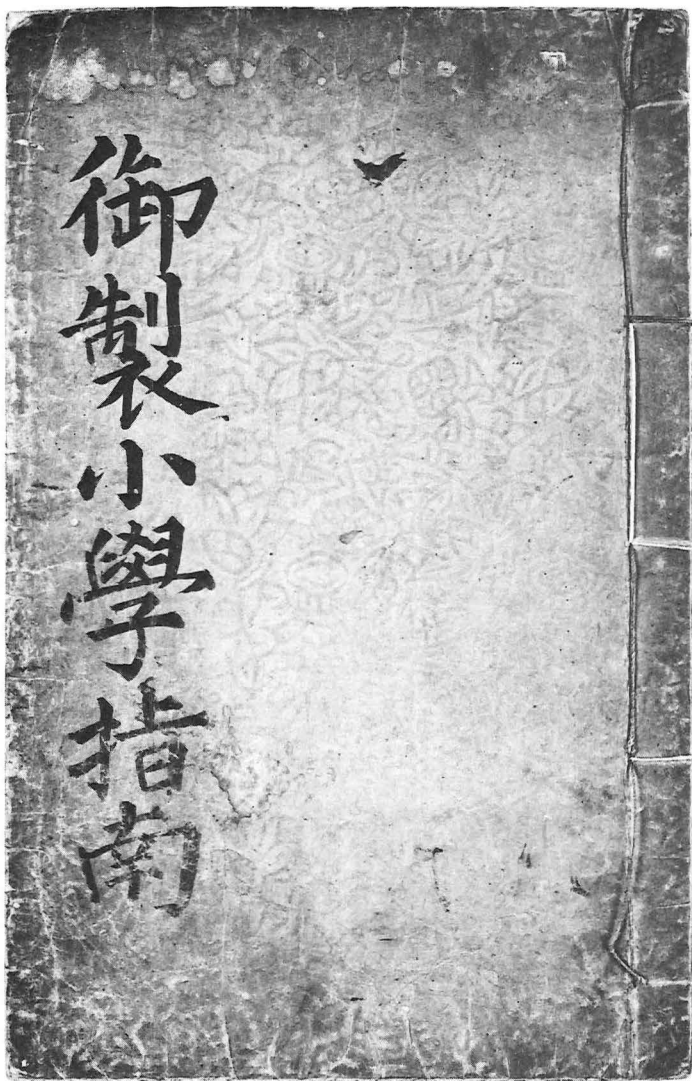 御製小學指南